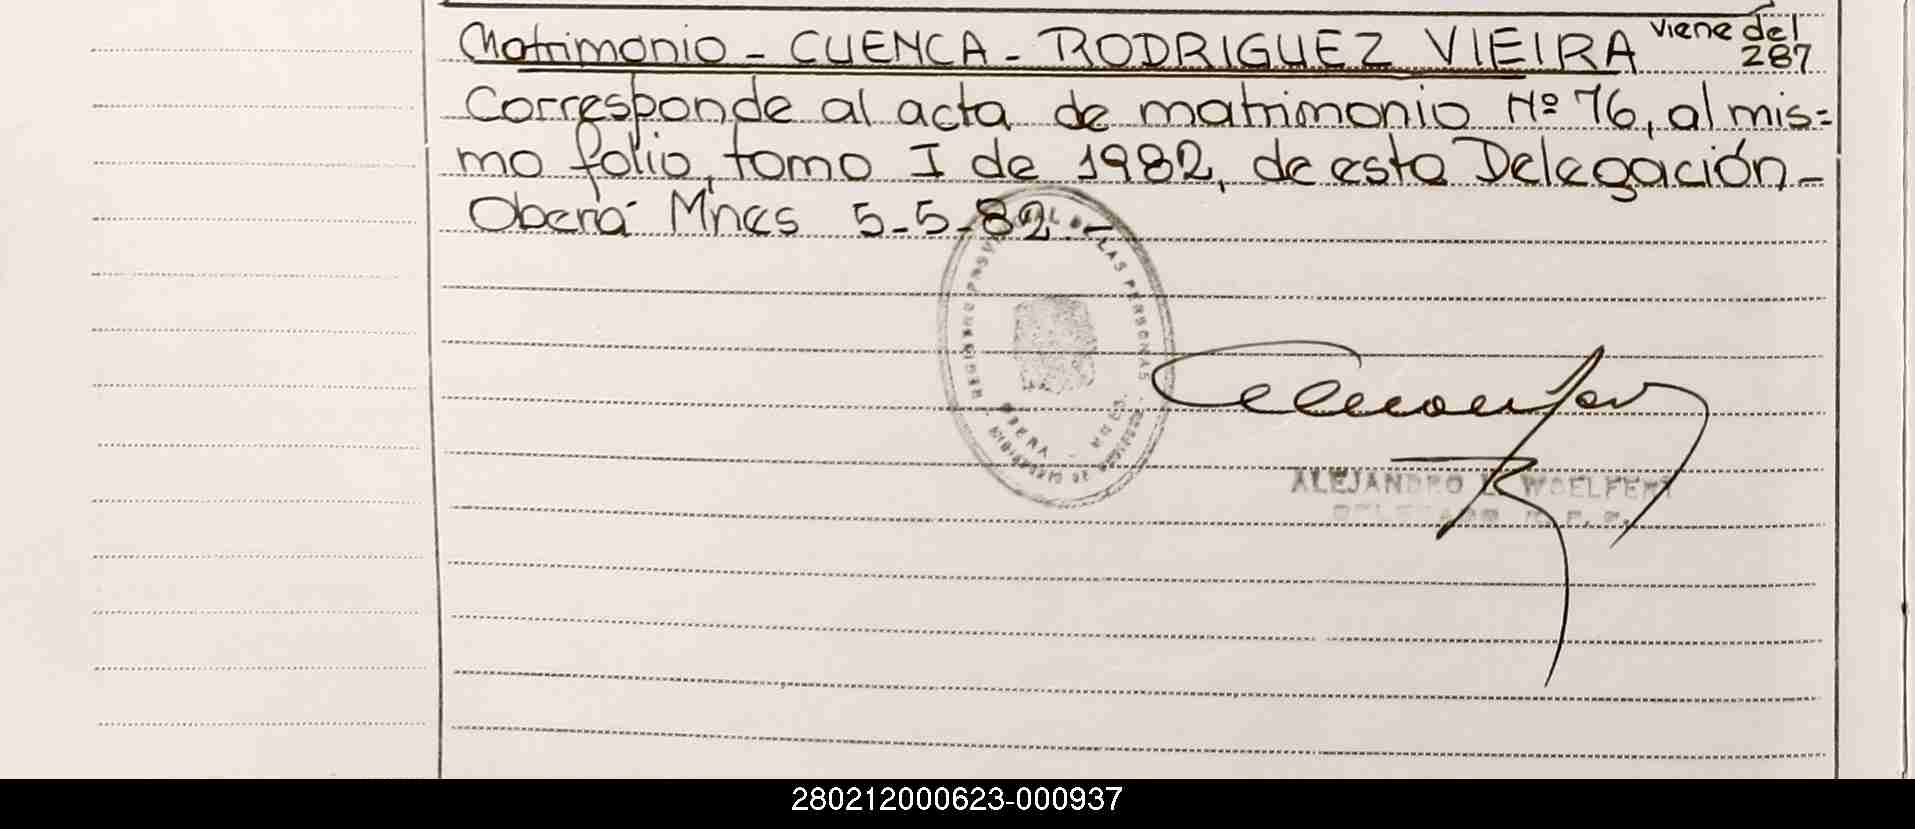 Matrimonio - CUENCA - RODRIGUEZ VIEIRA viene del 287
Corresponde al acta de matrimonio Nº 76, al mis=
mo folio, tomo I de 1982, de esta Delegación-
Oberá Mnes 5-5-82.-
DE LAS PERSONAS
OBERA - MNES.
ALEJANDRO L. WOELFERT
DELEGADO R. P. P.
280212000623-000937